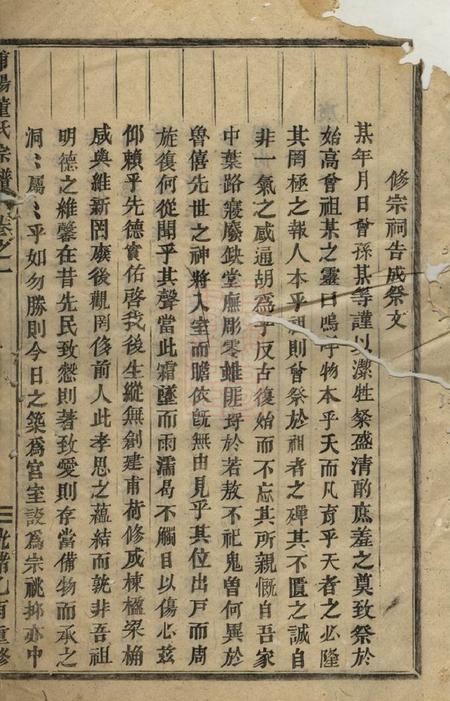 修宗祠告成祭文
某年月日曾孫某等謹以潔牲粢盛清酌庶羞之奠致祭於
始高曾祖某之靈曰嗚呼物本乎天而凡育乎天者之必隆
其罔極之報人本乎祖則曾祭於祖者之殫其不匱之誠自
非一氣之感通胡為乎反古復始而不忘其所親慨自吾家
中葉路寢廢缺堂廡彫零雖匪等於若敖不祀鬼曾何異於
魯僖先世之神將入室而瞻依旣無由見乎其位出戸而周
旋復何從聞乎其聲當此霜墜而雨濡曷不觸目以傷心茲
仰賴乎先德實佑啓我後生縱無創建甫荷修成棟楹梁桷
咸典維新罔廢後觀罔俢前人此孝思之蘊結而就非吾祖
明德之維馨在昔先民致慤則著致愛則存當備物而承之
洞〻屬〻乎如勿勝則今日之築為宮室設為宗祧抑亦中
董氏宗譜
卷之一
光緒乙酉重修